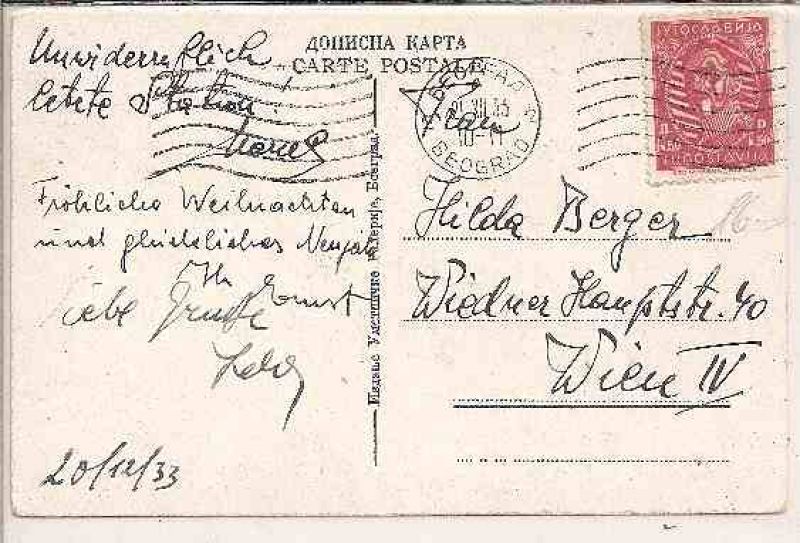 ДОПИСНА КАРТА
CARTE POSTALE
Unwiderruflich
letzte Station!
Fröhliche Weihnachten
und glückliches Neujahr
Ihr Ernst
Liebe Grüße
20/12/33
Издање Уметничке Галерије, Београд.
БЕОГРАД 2
XII 33
10-11
BEOGRAD
ЈУГОСЛАВИЈА
JUGOSLAVIJA
Frau
Hilda Berger
Wiedner Hauptstr. 40
Wien IV